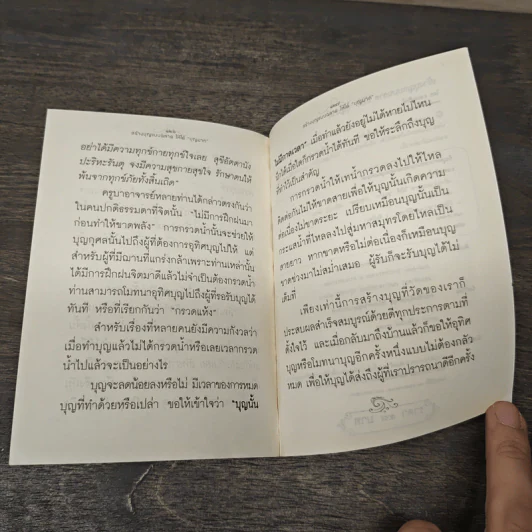 อย่าได้มีความทุกข์กายทุกข์ใจเลย สุขีอัตตานัง
ปะริหะรันตุ จงมีความสุขกายสุขใจ รักษาตนให้
พ้นจากทุกข์ภัยทั้งสิ้นเถิด"
ครูบาอาจารย์หลายท่านได้กล่าวตรงกันว่า
ในคนปกติธรรมดาที่จิตนั้น "ไม่มีการฝึกฝนมา
ก่อนทำให้ขาดพลัง" การกรวดน้ำนั้นจะช่วยให้
บุญกุศลนั้นไปถึงผู้ที่ต้องการอุทิศบุญไปให้ แต่
สำหรับผู้ที่มีฌานที่แกร่งกล้าเพราะท่านเหล่านั้น
ได้มีการฝึกฝนจิตมาดีแล้วไม่จำเป็นต้องกรวดน้ำ
ท่านสามารถโมทนาอุทิศบุญไปถึงผู้ที่รอรับบุญได้
ทันที หรือที่เรียกกันว่า "กรวดแห้ง"
สำหรับเรื่องที่หลายคนยังมีความกังวลว่า
เมื่อทำบุญแล้วไม่ได้กรวดน้ำหรือเลยเวลากรวด
น้ำไปแล้วจะเป็นอย่างไร
บุญจะลดน้อยลงหรือไม่ มีเวลาของการหมด
บุญที่ทำด้วยหรือเปล่า ขอให้เข้าใจว่า "บุญนั้น
ไม่มีกาลเวลา" เมื่อทำแล้วยังอยู่ไม่ได้หายไปไหน
นึกได้เมื่อใดก็กรวดน้ำได้ทันที ขอให้ระลึกถึงบุญ
ที่ทำไว้เป็นสำคัญ
การกรวดน้ำให้เทน้ำกรวดลงไปให้ไหล
ติดต่อกันไม่ให้ขาดสายเพื่อให้บุญนั้นเกิดความ
ต่อเนื่องไม่ขาดระยะ เปรียบเหมือนบุญนั้นเป็น
กระแสน้ำที่ไหลลงไปสู่มหาสมุทรโดยไหลเป็น
สายยาว หากขาดหรือไม่ต่อเนื่องก็เหมือนบุญ
ขาดช่วงมาไม่สม่ำเสมอ ผู้รับก็จะรับบุญได้ไม่
เต็มที่
เพียงเท่านี้การสร้างบุญที่วัดของเราก็
ประสบผลสำเร็จสมบูรณ์ด้วยดีทุกประการตามที่
ตั้งใจไว้ และเมื่อกลับมาถึงบ้านแล้วก็ขอให้อุทิศ
บุญหรือโมทนาบุญอีกครั้งหนึ่งแบบไม่ต้องกลัว
หมด เพื่อให้บุญได้ส่งถึงผู้ที่เราปรารถนาดีอีกครั้ง